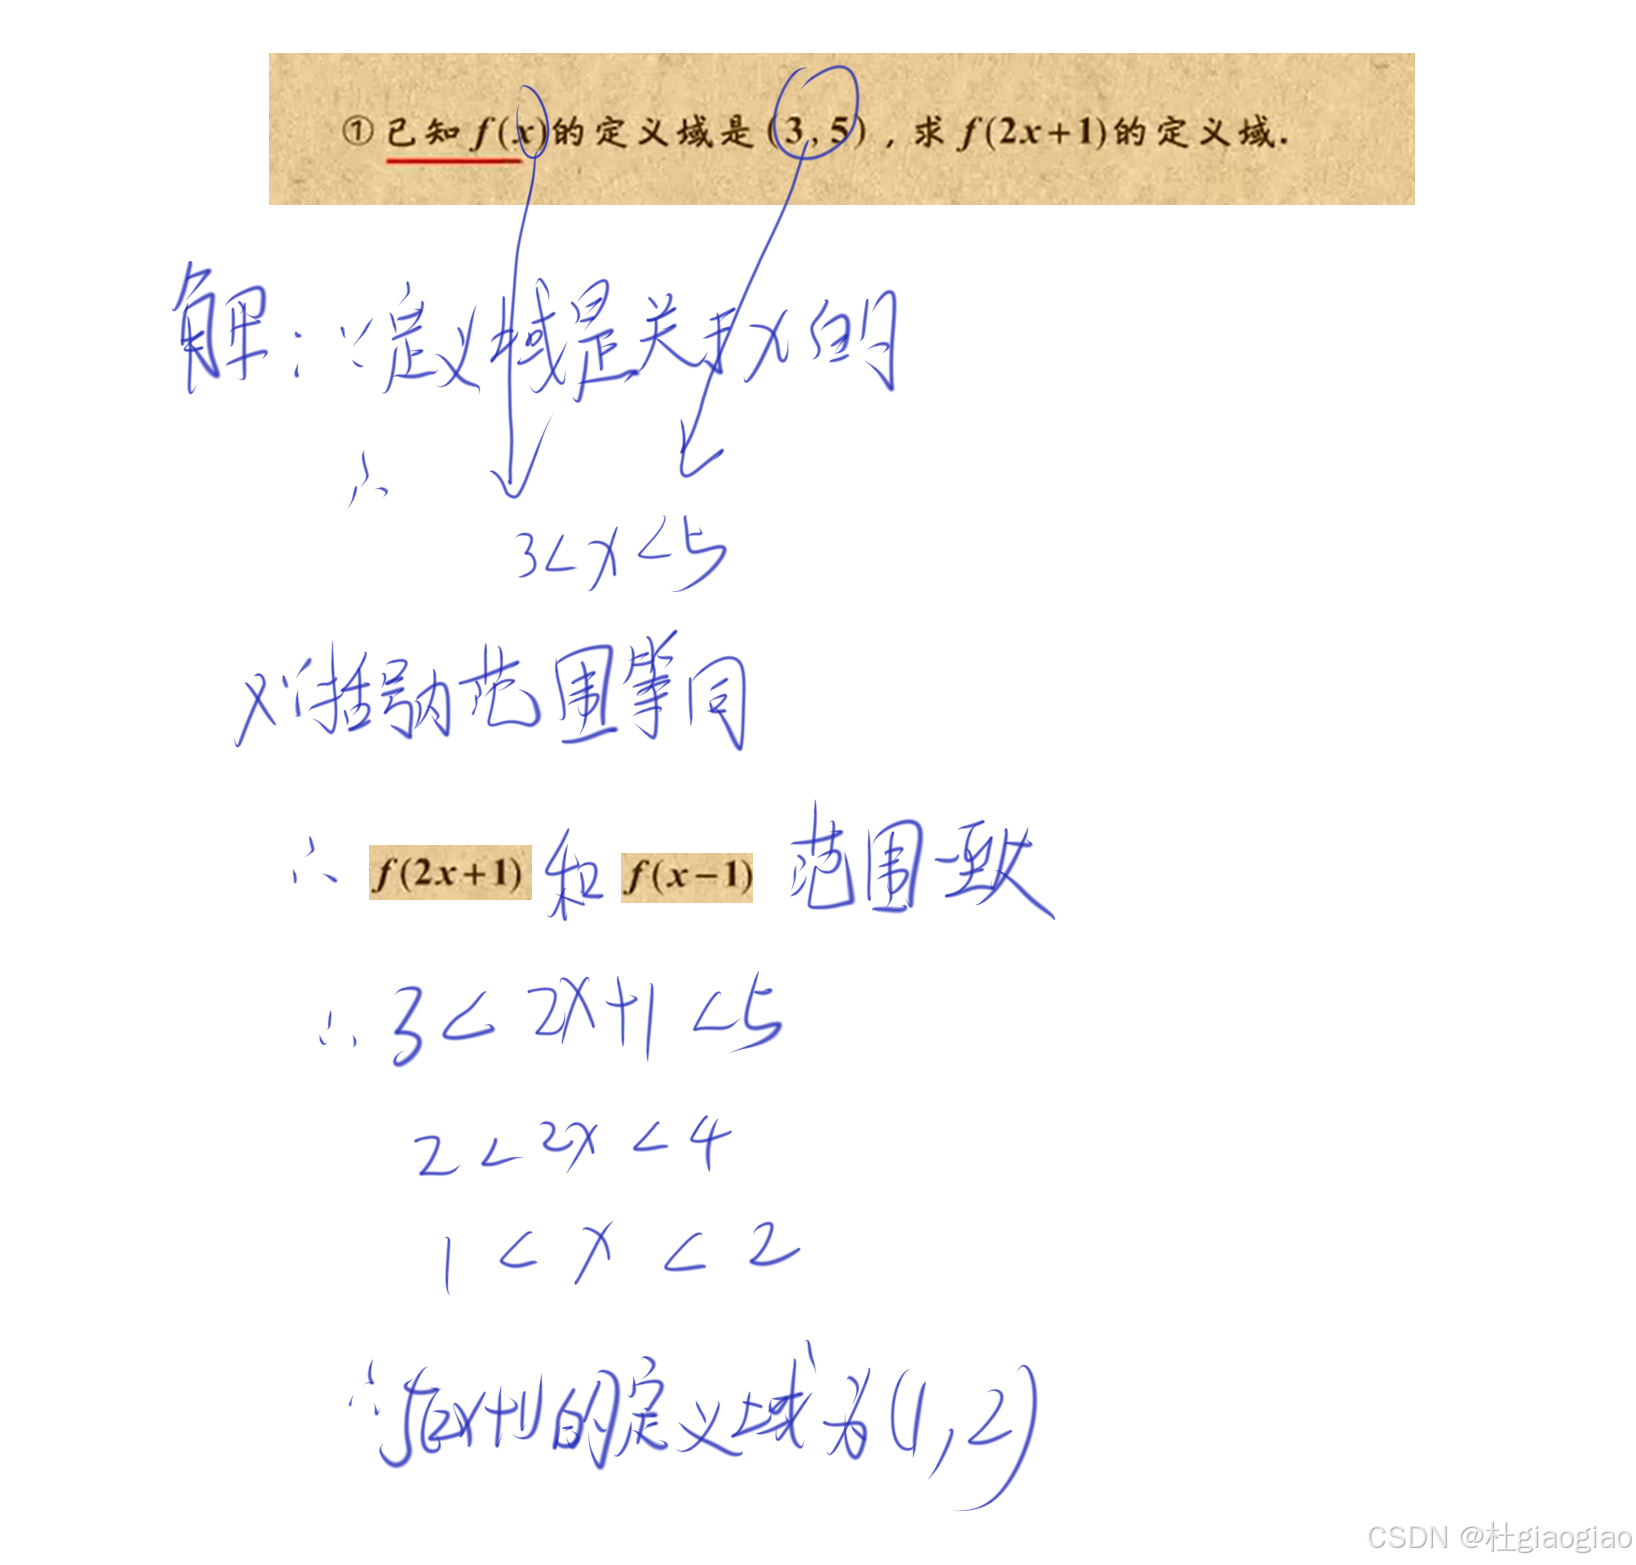 ① 已知 f(x)的定义域是 (3,5) ，求 f(2x+1)的定义域.
解：∵定义域是关于x的
∴
3<x<5
又∵括号内范围等同
∴ f(2x+1) 和 f(x−1) 范围一致
∴ 3<2x+1<5
2<2x<4
1<x<2
∴f(2x+1)的定义域为(1,2)
CSDN @杜giaogiao